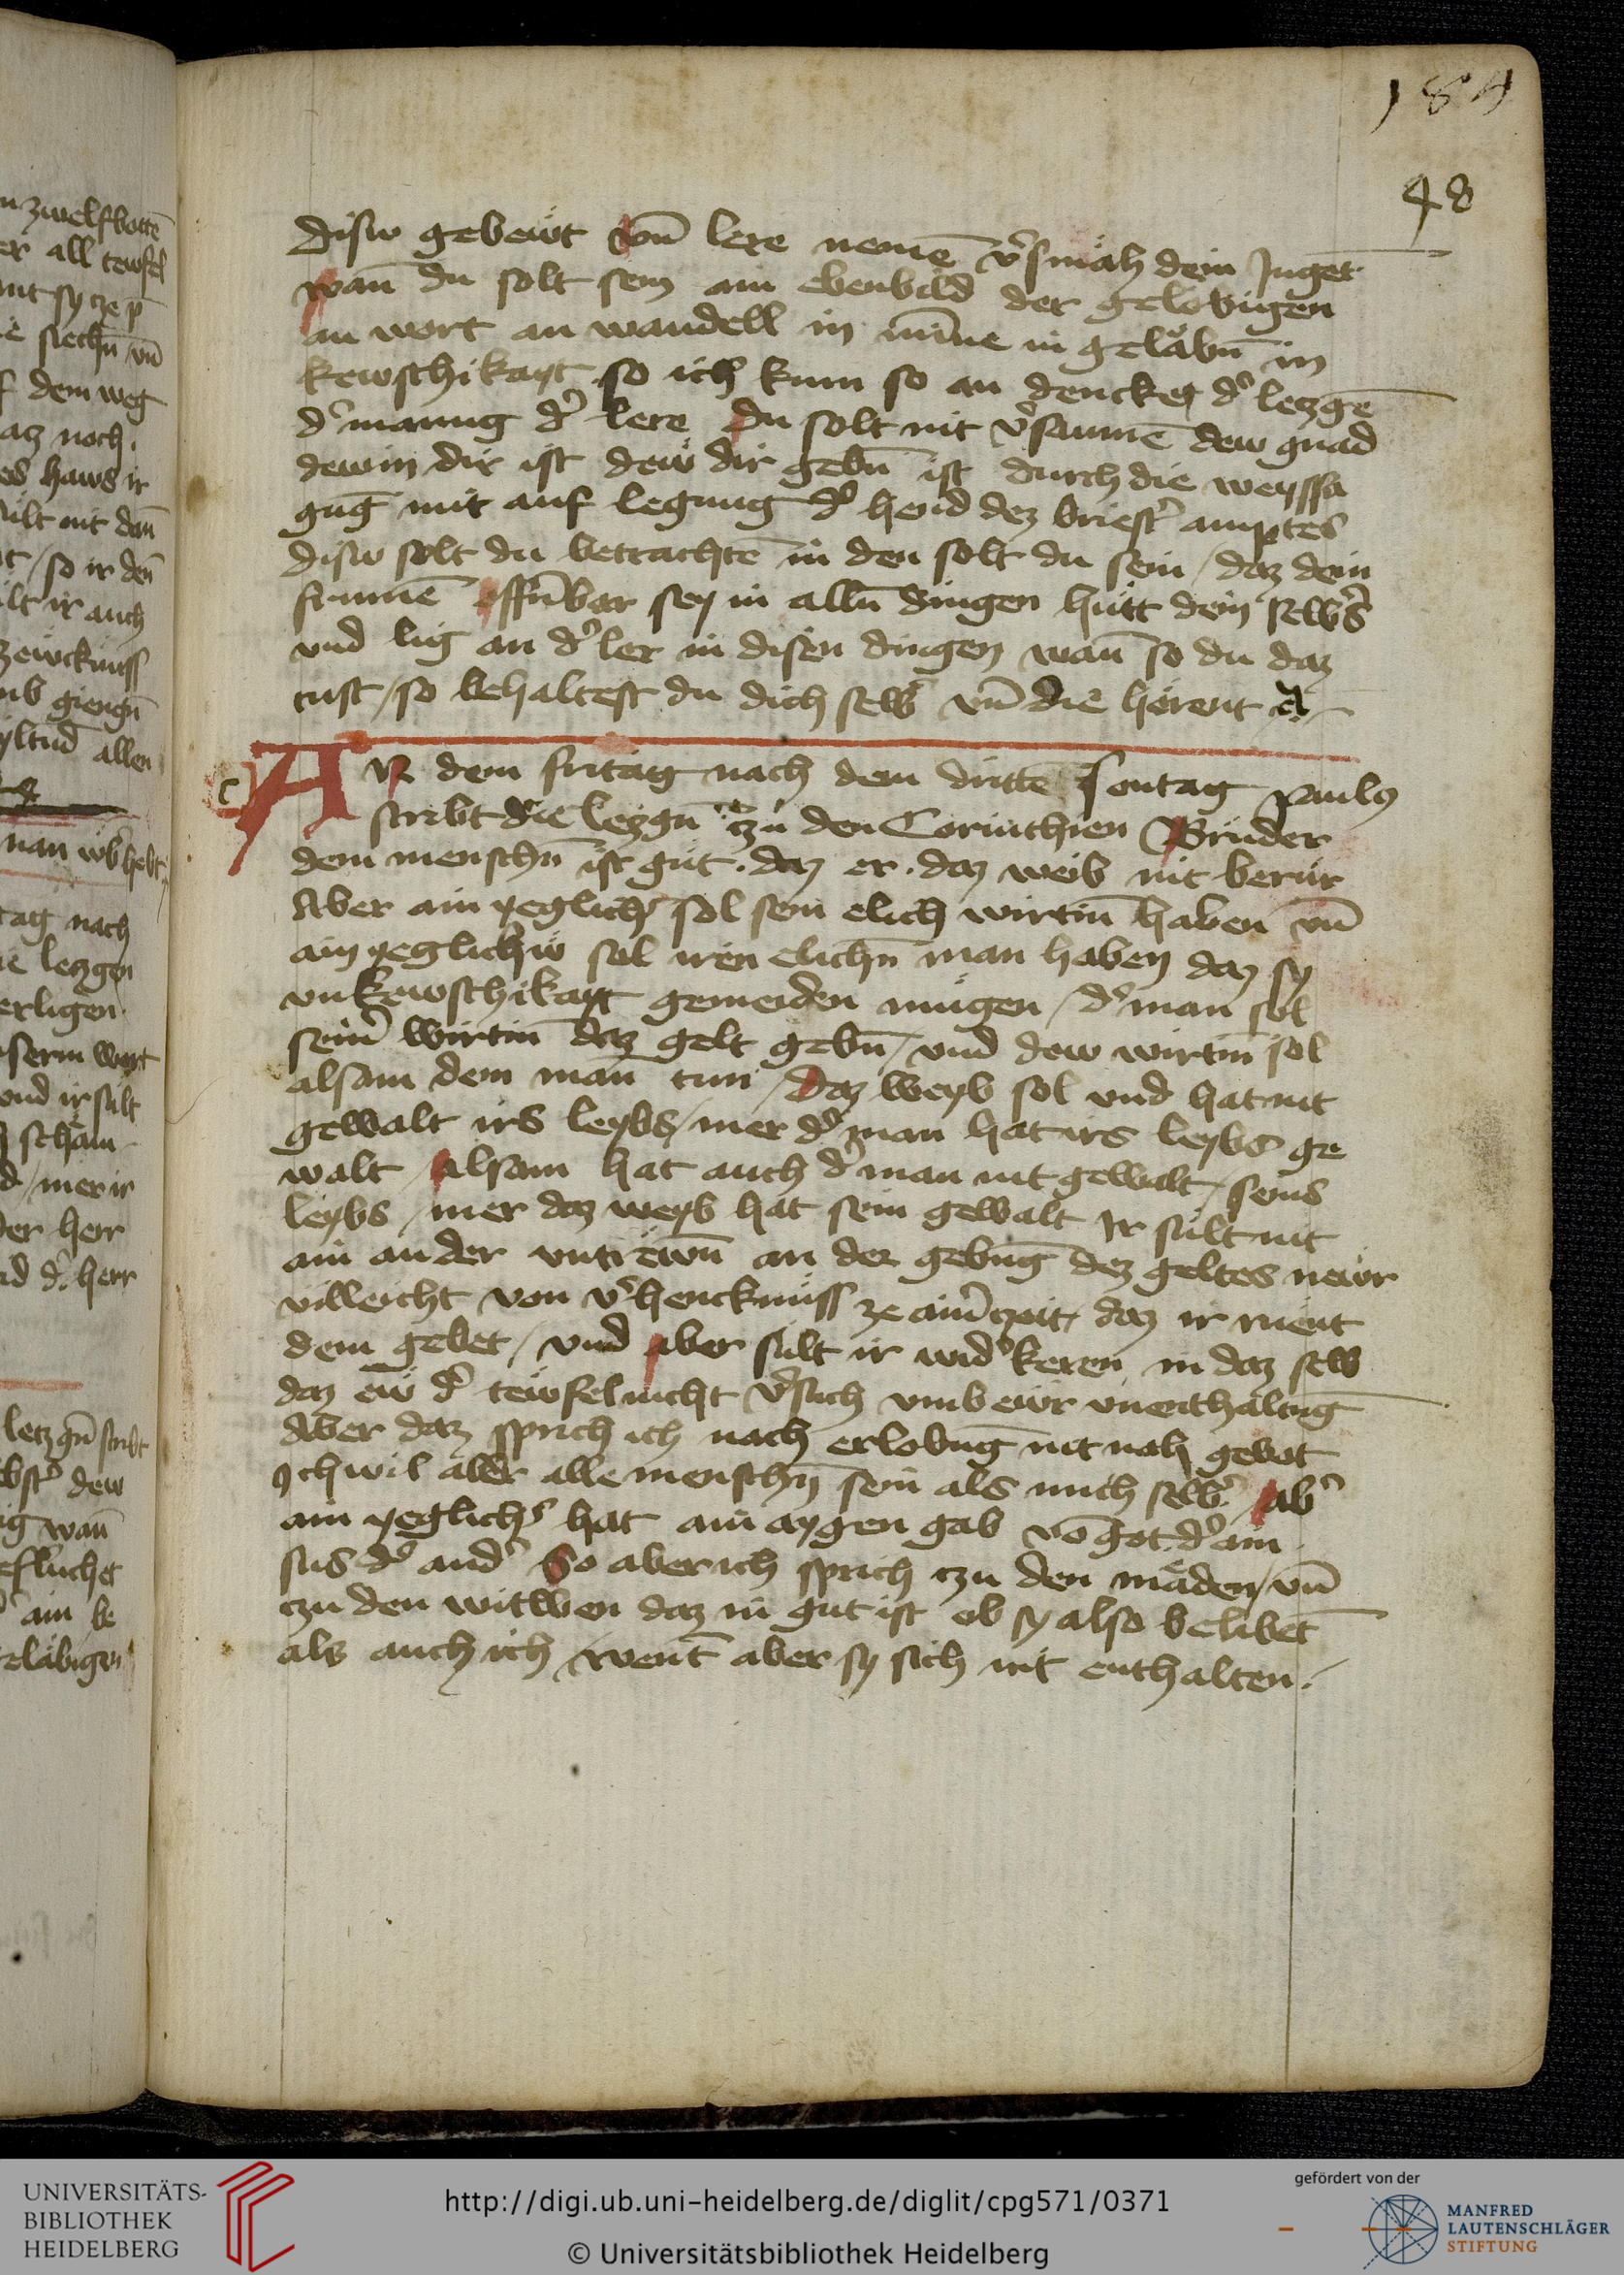 184
48
disw gebewt vn̄ lere nemē v̓smäh dein Jugēt
wan̄ du solt sein ain ebenbild der gelobigen
an wort an wandell in min̄e in geläbn̄ in
kewschikayt so ich kum so an denckeg d̓ letzgē
d̓manug d̓ lere du solt nit v̓saumē dew gnad
dew in dir ist dew dir gebn̄ ist durch die weyssa
gūg mit auf legung d̓ hend dez briest̓ amptes
disw solt du betrachtē in den solt du sein / daz dein
frumē offn̄bar sey in alln̄ dingen hütt dein selb̓s
vnd lig an d̓ ler in disen dingen wan̄ so du daz
tust / so behaltest du dich selb vn̄ die hörent d̓
An dem fritag nach dem drittē sontag paulus
scribt die leczgn̄ czu den Corinthien Brüder
dem menschn̄ ist güt. daz er. daz weib nit berür
Aber ain yeglich̓ sol sein elich wirtin̄ haben vn̄
ain yeglich̓w sol iren elichn̄ man haben daz sy
vnkewschikayt gemeiden mügen / d̓ man sol
sein̓ wirtin̄ daz gelt gebn̄ / vnd dew wirtin̄ sol
alsam dem man̄ tun / Daz weyb sol vnd hat nit
gewalt irs leybs / mer d̓ man hat irs leybs ge
walt / alsam hat auch d̓ man nit gewalt / seins
leybs / mer daz weyb hat sein gewalt Ir sült nit
ain an der vntrewn̄ an der gebūg dez geltes newr
villeicht von v̓hencknüss ze ain̓ czeit / daz ir rüent
dem gebet / vnd aber sült ir wid̓ keren in daz selb
daz ew d̓ tewfel nicht v̓such vmb ewr vnenthaltūg
Aber daz sprich ich nach erlobūg nit nah gebot
Ich wil aber alle menschn̄ sein als mich selb̓ / ab̓
ain yeglich̓s hat ain aygen gab vō got d̓ ain
sus d̓ and̓ so aber ich sprich czu den mäden / vn̄
czu den witwen daz in gut ist ob sy also belibēt
als auch ich / went̄ aber sy sich nit enthalten.
UNIVERSITÄTS-
BIBLIOTHEK
HEIDELBERG
http://digi.ub.uni-heidelberg.de/diglit/cpg571/0371
© Universitätsbibliothek Heidelberg
gefördert von der
MANFRED
LAUTENSCHLÄGER
STIFTUNG